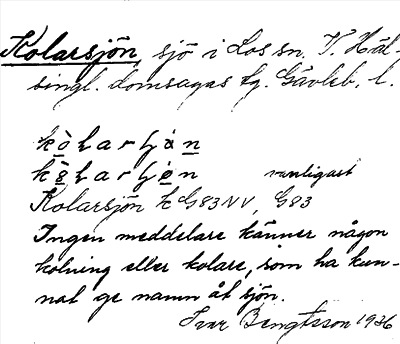 Kolarsjön, sjö i Los sn, V. Häl-
singl. domsagas tg. Gävleb. l.
vanligast
Kolarsjön k G83NV, G83
Ingen meddelare känner någon
kolning eller kolare, som ha kun-
nat ge namn åt sjön.
Ivar Bengtsson 1936